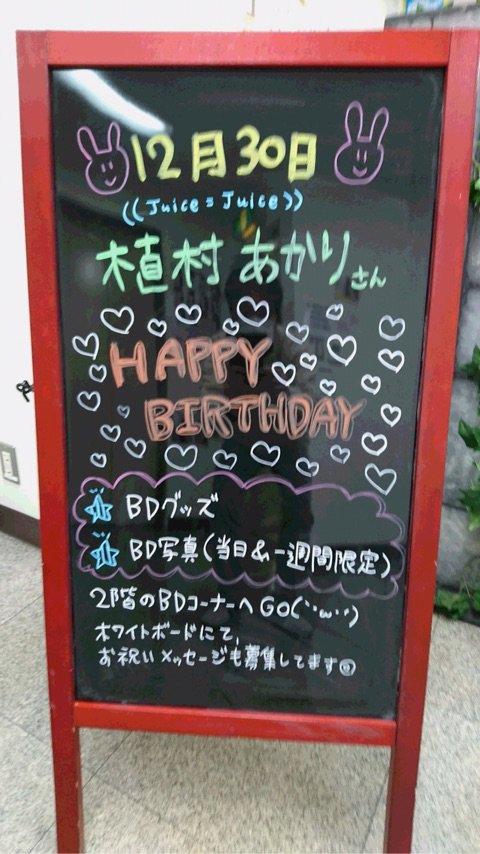 12月30日
((Juice=Juice))
植村 あかりさん
HAPPY
BIRTHDAY
BDグッズ
BD写真(当日&一週間限定)
2階のBDコーナーへGO(``ω´´)
ホワイトボードにて、
お祝いメッセージも募集してます